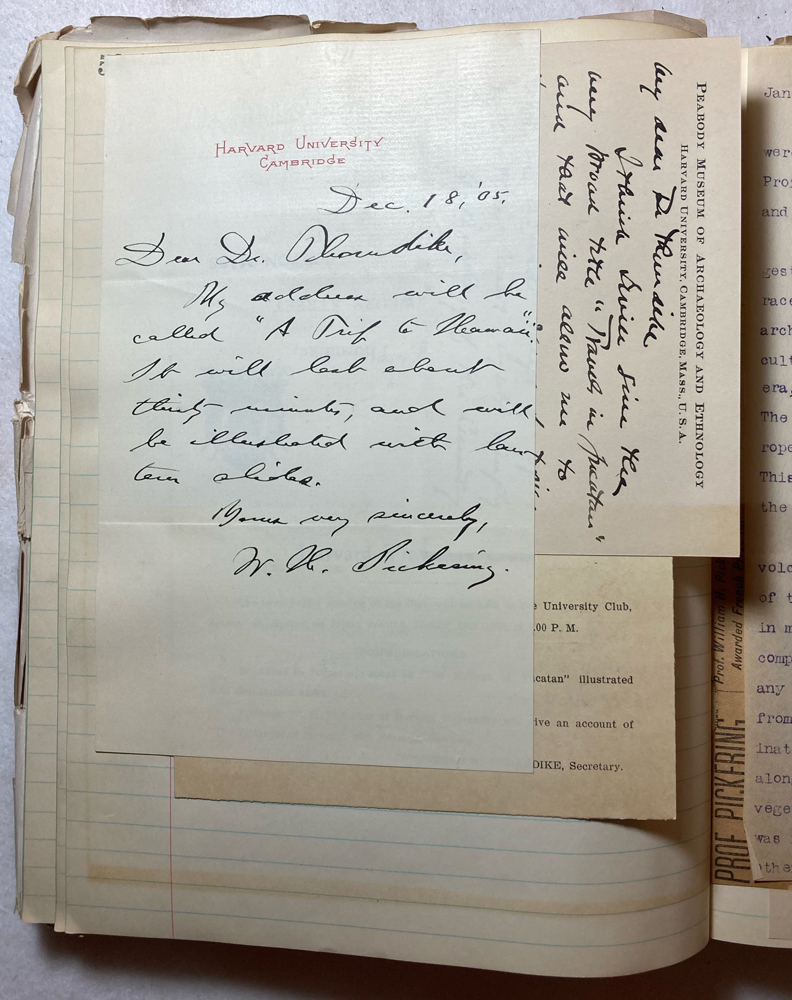 HARVARD UNIVERSITY
CAMBRIDGE
Dec. 18, '05.
Dear Dr. Thorndike,
My address will be
called "A Trip to Hawaii".
It will last about
thirty minutes, and will
be illustrated with lan-
tern slides.
Yours very sincerely,
W. H. Pickering.
PEABODY MUSEUM OF ARCHAEOLOGY AND ETHNOLOGY
HARVARD UNIVERSITY, CAMBRIDGE, MASS., U. S. A.
My dear Dr Thorndike
I think I will give the
very broad title "Travels in Yucatan"
and that will allow me to
e University Club,
.00 P. M.
catan" illustrated
ive an account of
DIKE, Secretary.
PROF PICKERING
Prof. William H. Pick
Awarded French P
Jan
were
Pro
and
gest
race
arch
cult
era,
The
rope
This
the
volc
of t
in m
comp
any
from
inat
alon
vege
was
othe